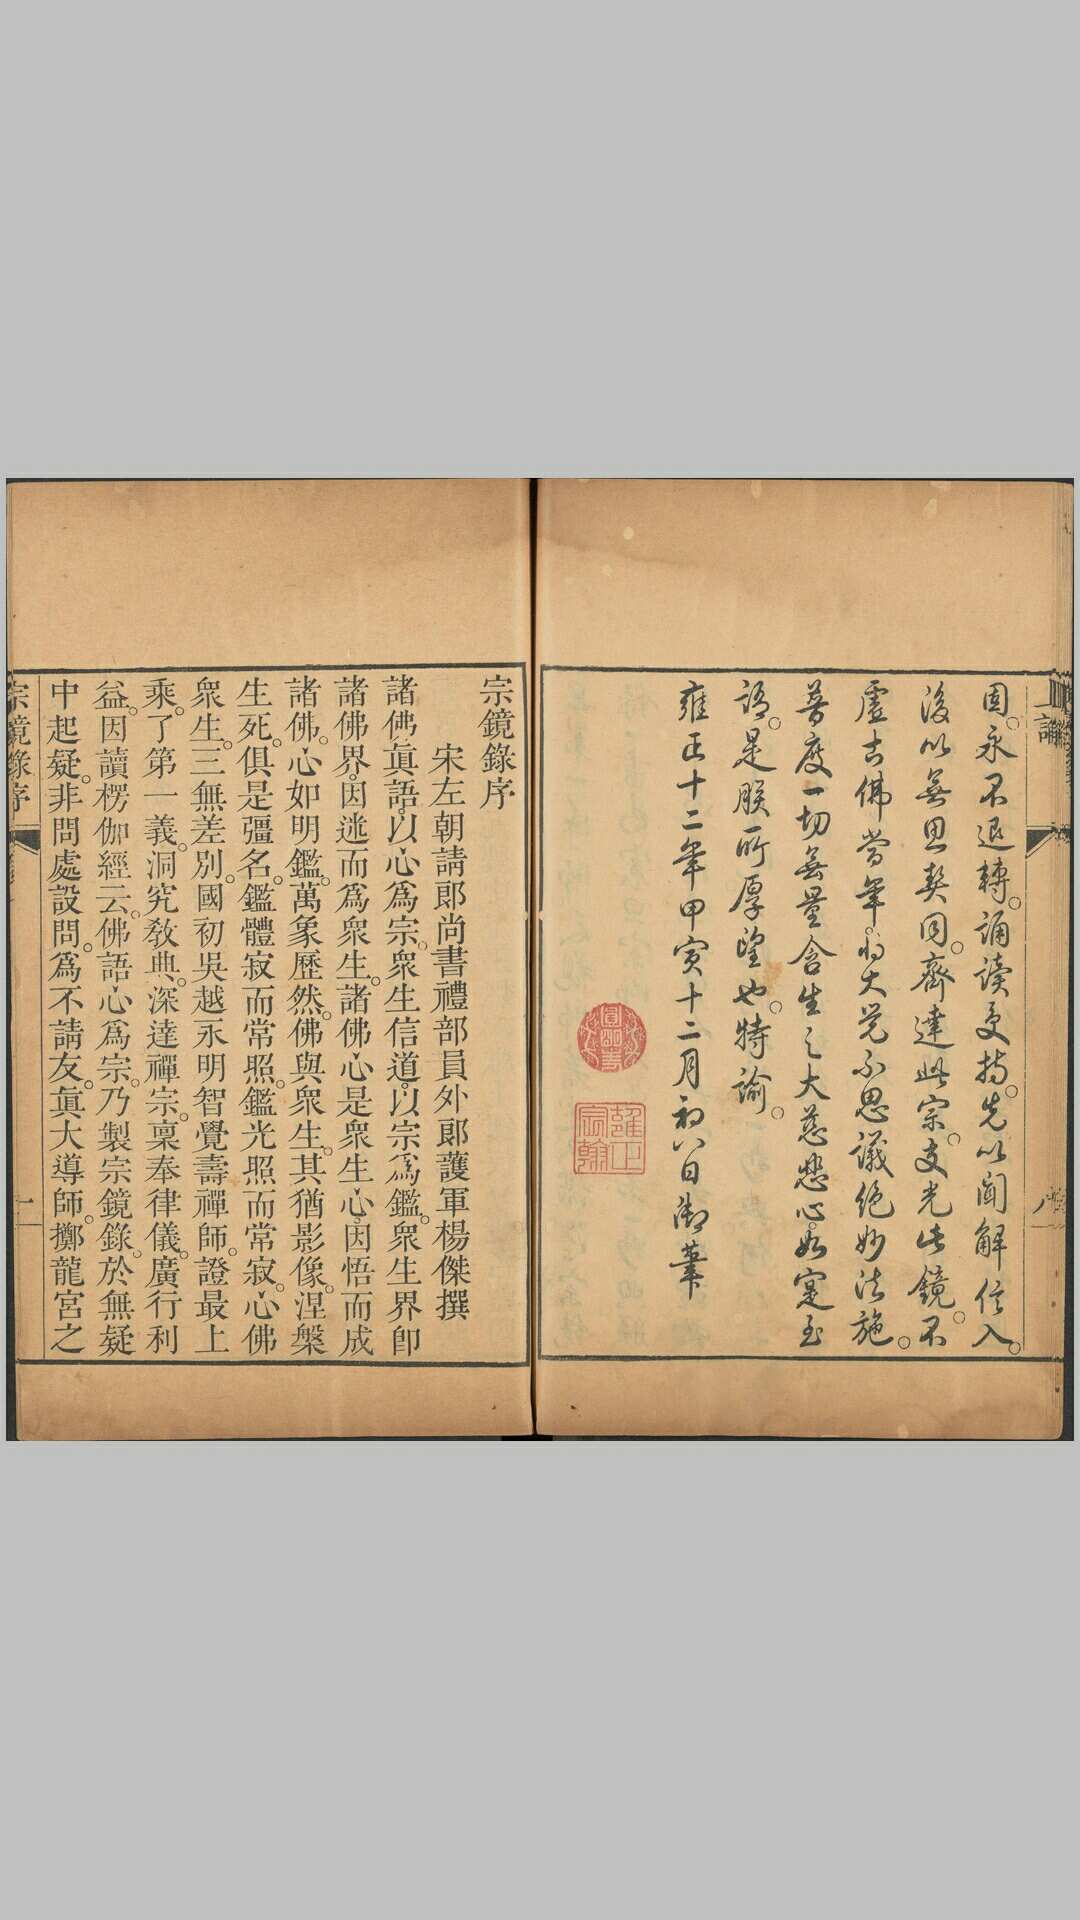 上諭
八
固。永不退轉。誦讀受持。先以聞解信入。
後以無思契同。齊達此宗。支光此鏡。不
虛古佛當年。以大覺不思議絕妙法施。
普度一切無量含生之大慈悲心。如寔至
語。是朕所厚望也。特諭。
雍正十二年甲寅十二月初八日御筆
圓明主人
雍正宸翰
宗鏡錄序
宋左朝請郎尚書禮部員外郎護軍楊傑撰
諸佛眞語。以心爲宗。衆生信道。以宗爲鑑。衆生界卽
諸佛界。因迷而爲衆生。諸佛心是衆生心。因悟而成
諸佛。心如明鑑。萬象歷然。佛與衆生。其猶影像。涅槃
生死。俱是彊名。鑑體寂而常照。鑑光照而常寂。心佛
衆生。三無差別。國初吳越永明智覺壽禪師。證最上
乘。了第一義。洞究敎典。深達禪宗。稟奉律儀。廣行利
益。因讀楞伽經云。佛語心爲宗。乃製宗鏡錄。於無疑
中起疑。非問處設問。爲不請友。眞大導師。擲龍宮之
宗鏡錄序
一